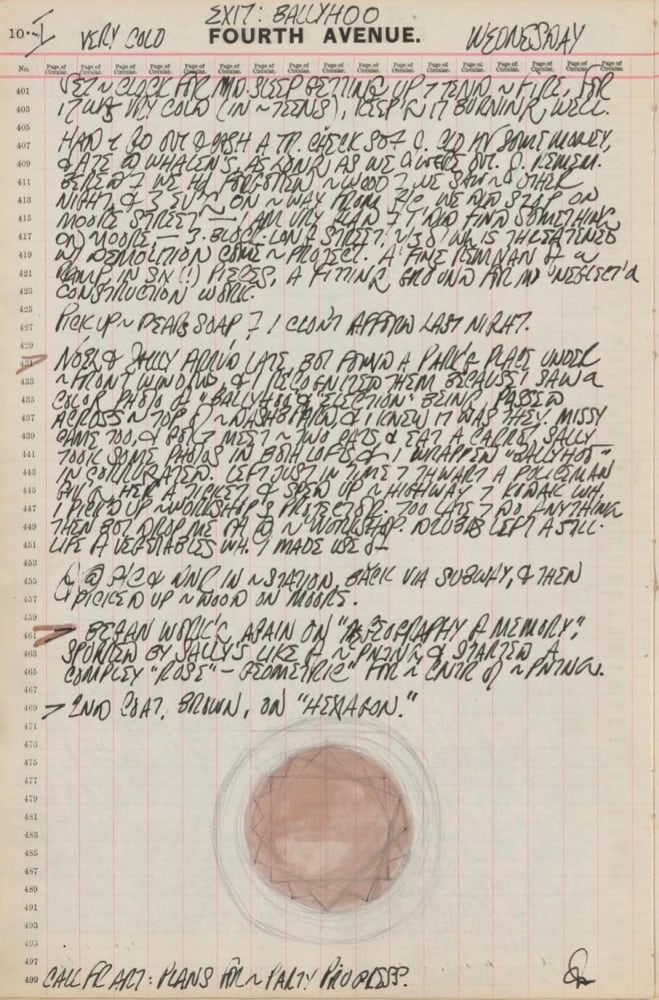 EXIT: BALLYHOO
10--I VERY COLD FOURTH AVENUE. WEDNESDAY
No. Page of Circular. Page of Circular. Page of Circular. Page of Circular. Page of Circular. Page of Circular. Page of Circular. Page of Circular. Page of Circular. Page of Circular. Page of Circular. Page of Circular. Page of Circular. Page of Circular. Page of Circular. Page of Circular. Page of Circular. Page of Circular.
401 SET ~ CLOCK FOR MID. SLEEP GETTING UP 7 TEND ~ FIRE, FOR
403 IT WAS VRY COLD (IN ~ TEENS), KEEP'N IT BURNING, WELL.
405
407 HAD GO OUT & CASH A CHECK SO SOME MONEY,
409 & ATE @ WHALEN'S, AS LONG AS WE WERE OUT.
411 WE HD FORGOTTEN ~ WOOD WE SAW ~ OTHER
413 NIGHT, & ON ~ WAY FROM WE DID STOP ON
415 MOORE STREET — I AM VRY GLAD I DID FIND SOMETHING
417 ON MOORE, — 3-BLOCK-LONG STREET, IS THREATENED
419 W/ DEMOLITION SOME ~ PROJECT. A FINE REMNAN OF A
421 LAMP IN SIX (!) PIECES, A FITTING GROUND FOR MY "NEGLECT'D
423 CONSTRUCTION" WORK.
425
427 PICK UP ~ PEARS SOAP 7 I CLDN'T AFFORD LAST NIGHT.
429
431 NOEL & SALLY ARRIV'D LATE, BUT FOUND A PARK'G PLACE UNDER
433 ~ FRONT WINDOWS, & I RECOGNIZED THEM BECAUSE I SAW A
435 COLOR PHOTO OF "BALLYHOO" & "ELECTION" BEING PASSED
437 ACROSS ~ TOP OF ~ DASHBOARD, & I KNEW IT WAS THEY. MISSY
439 CAME TOO, & MEET ~ TWO CATS, & EAT A CARROT. SALLY
441 TOOK SOME PHOTOS IN BOTH LOFTS, & I WRAPPED "BALLYHOO"
443 IN CORRUGATED. LEFT JUST IN TIME 7 THWART A POLICEMAN
445 GIV'G HER A TICKET, & SPED UP ~ HIGHWAY 7 KODAK WH.
447 I PICK'D UP ~ WORKSHOP'S PROJECTOR. TOO LATE 7 DO ANYTHING
449 THEN BUT DROP ME OFF @ ~ WORKSHOP. LEFT A STILL-
451 LIFE OF VEGETABLES WH. I MADE USE OF
453
455 @ & DNR IN ~ STATION, BACK VIA SUBWAY, & THEN
457 PICKED UP ~ WOOD ON MOORE.
459
461 BEGAN WORK'G AGAIN ON "GEOGRAPHY OF MEMORY",
463 SPURRED BY SALLY'S LIKE OF ~ PNTING & STARTED A
465 COMPLEX "ROSE" – GEOMETRIC" FOR ~ CNTR OF ~ PNTING.
467
469 > 2ND COAT, BROWN, ON "HEXAGON."
471
473
475
477
479
481
483
485
487
489
491
493
495
497
499 CALL FR ART: PLANS FOR ~ PARTY PROGRESS.